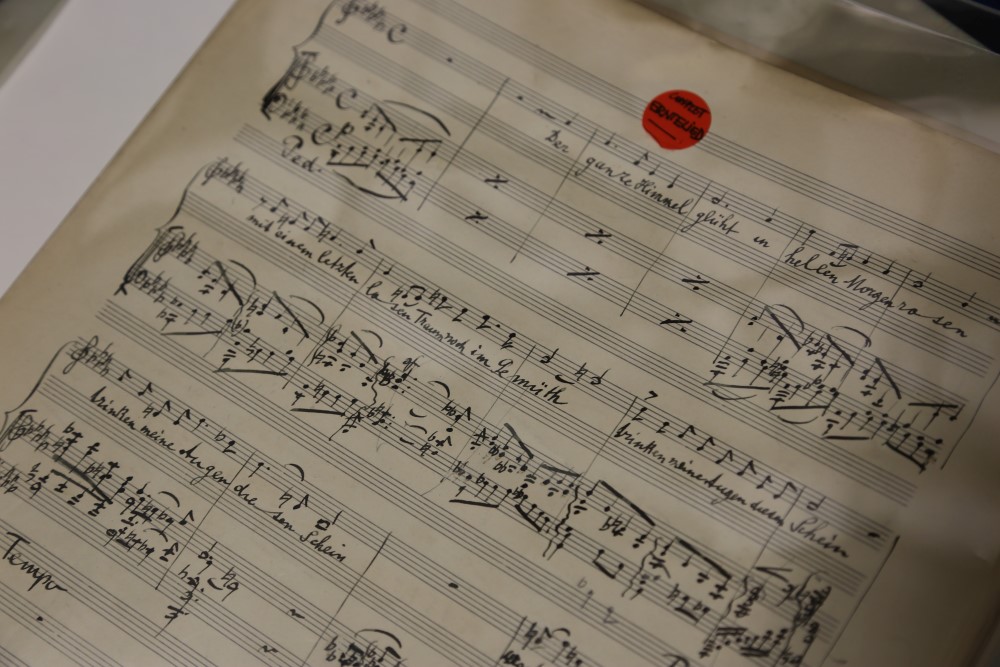 ERNTELIED
Ped.
Der ganze Himmel glüht in hellen Morgenrosen
mit einem letzten losen Traum noch im Gemüth
trinken meine Augen diesen Schein
trinken meine Augen diesen Schein
Tempo